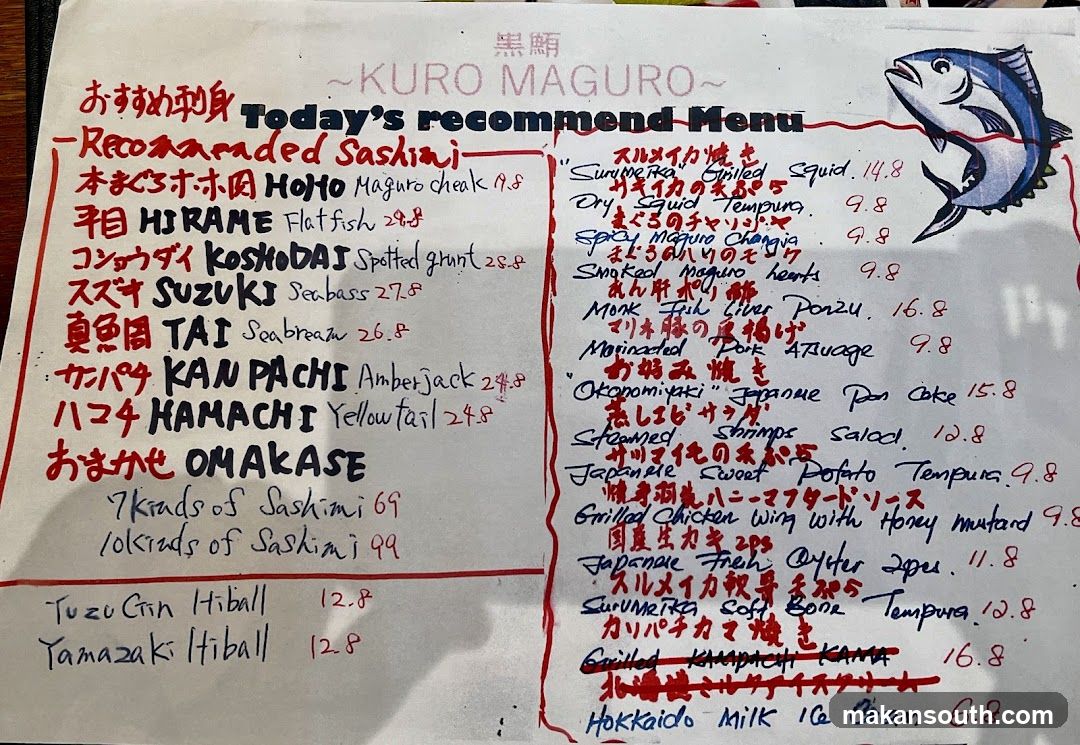 黒鮪
~KURO MAGURO~
Today's recommend Menu
おすすめ刺身
Recommended Sashimi
本まぐろホホ肉 HOHO Maguro cheak 19.8
平目 HIRAME Flatfish 28.8
コショウダイ KOSHODAI Spotted grunt 28.8
スズキ SUZUKI Seabass 27.8
真魚周 TAI Seabream 26.8
カンパチ KANPACHI Amberjack 24.8
ハマチ HAMACHI Yellowtail 24.8
おまかせ OMAKASE
7kinds of Sashimi 69
10kinds of Sashimi 99
Yuzu Gin Hiball 12.8
Yamazaki Hiball 12.8
スルメイカ焼き
"Surumeika" Grilled Squid. 14.8
サキイカの天ぷら
Dry Squid Tempura. 9.8
まぐろのチャンジャ
Spicy Maguro Changia. 9.8
まぐろのハツのモーク
Smoked Maguro hearts 9.8
あん肝ポン酢
Monk Fish Liver Ponzu. 16.8
マリネ豚の唐揚げ
Marinaded Pork ATSUAGE 9.8
お好み焼き
"Okonomiyaki" Japanese Pan Cake 15.8
蒸しエビサラダ
Steamed Shrimps Salad. 12.8
サツマイモの天ぷら
Japanese Sweet Potato Tempura 9.8
ハニーマスタードソース
Grilled Chicken Wing with Honey Mustard 9.8
国産生カキ 2ps
Japanese Fresh Oyster 2pcs. 11.8
スルメイカ軟骨天ぷら
Surumeika Soft Bone Tempura. 12.8
カンパチカマ焼き
Grilled KAMPACHI KAMA 16.8
北海道ミルクアイスクリーム
Hokkaido Milk Ice
makansouth.com